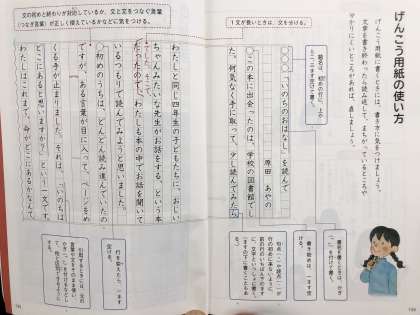 げんこう用紙の使い方
げんこう用紙に書くときには、書き方に気をつけましょう。
文章を書き終わったら読み返して、まちがっているところや
分かりにくいところがあれば、直しましょう。
文の初めと終わりが対応しているか、文と文をつなぐ言葉
(つなぎ言葉)が正しく使えているかなどに気をつける。
1文が長いときは、文を分ける。
「いのちのおはなし」を読んで
原田 あやの
この本に出会ったのは、学校の図書館でし
た。何気なく手に取って、少し読んでみたら、
わたしと同じ四年生の子どもたちに、おじい
ちゃんみたいな先生がお話をする、という本
だったので、わたしも本の中でお話を聞いて
いるつもりで読んでみようと思いました。
初めのうちは、どんどん読み進んでいたの
ですが、ある言葉が目に入って、ページをめ
くる手が止まりました。それは、「いのちは
どこにあると思いますか?」という一文です。
わたしはこれまで、命がどこにあるかなんて、
行を変えたら、一ます
空ける。